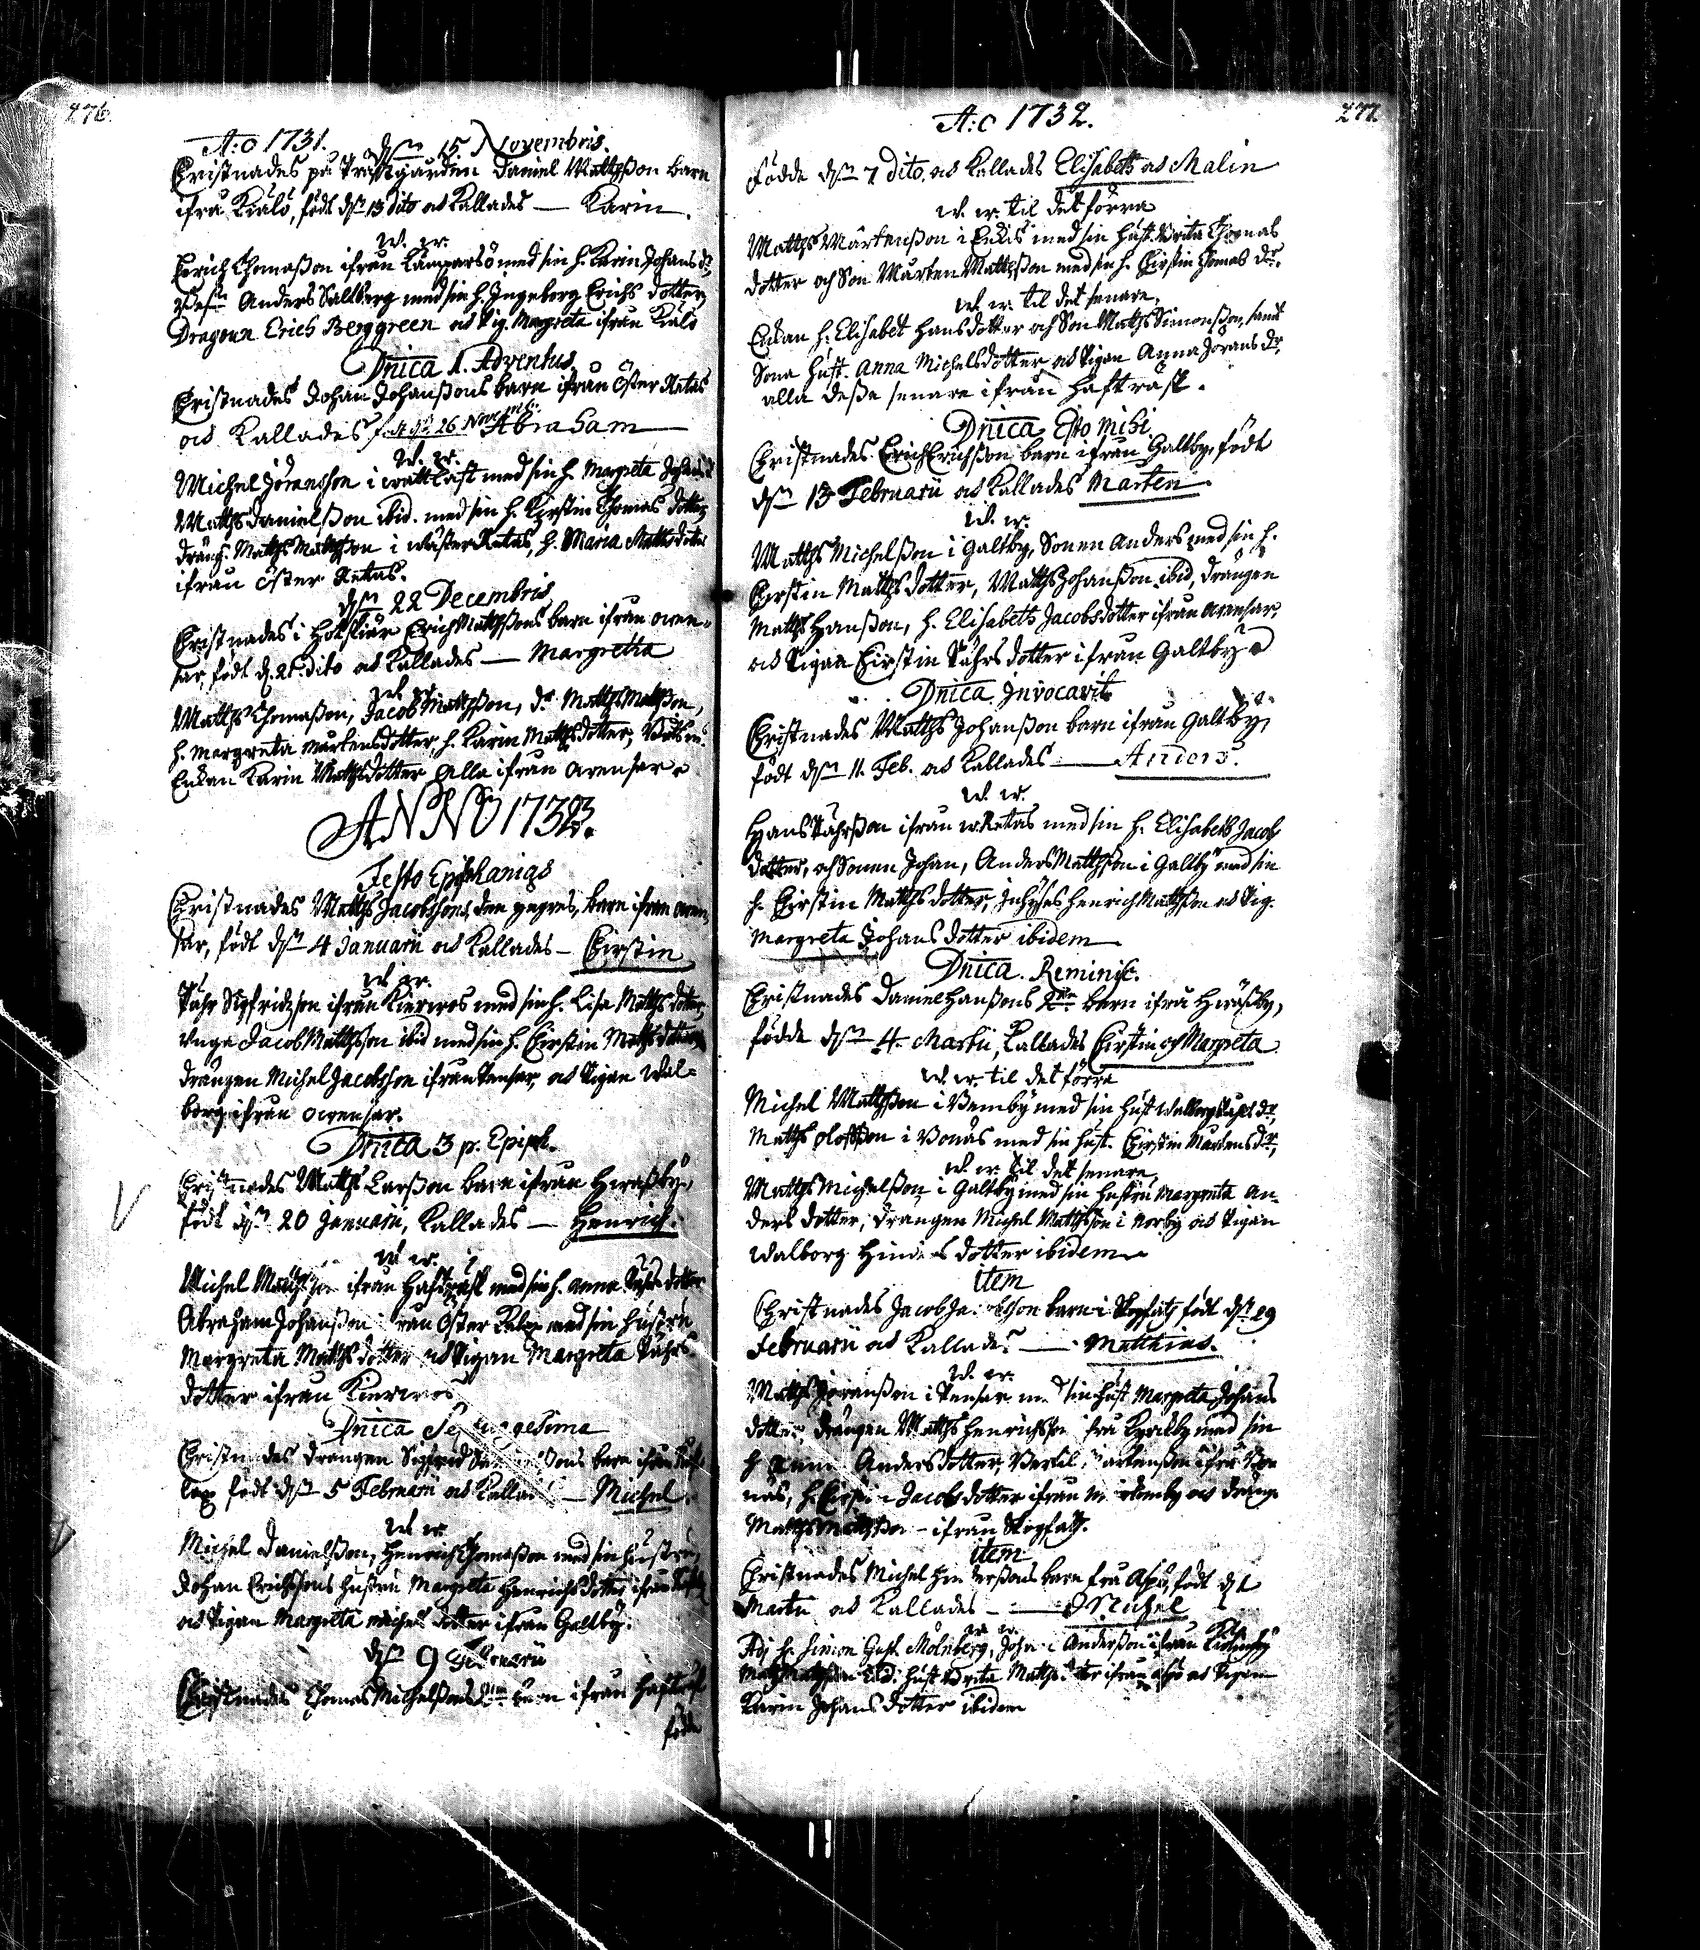 276.
A:o 1731. d. 15 Novembris.
Cristnades på Prästgården Daniel Mattzßon barn
ifrå Kialö, födt d. 13 dito och kallades — Karin.
W. w.
Erich Thomaßon ifrån Lamparsö med sin h. Karin Johans dr,
Anders Salberg med sin h. Ingeborg Erichs dotter,
Dragoun Erich Berggreen och Pig. Margreta ifrån Kialö
Dnica 1. Adventus
Cristnades Johan Johanßons barn ifrån Öster Retas
och kallades f. d. 26 Novemb. Abraham
W. w.
Michel Jöransson i wattkast med sin h. Margreta Johans
Matths Danielßon ibid. med sin h. Kirstin Thomas dotter
dräng. Matths Mattßon i wäster Retas, h. Maria Matthsdoter
ifrån Öster Retas.
d. 22 Decembris
Cristnades i Erich Mattßons barn ifrån owen-
sar, födt d. 21. dito och kallades — Margretha
W. w.
Matths Thomaßon, Jacob Mattßon, dr. Matths Mattßon,
h. Margreta Mårtensdotter, h. Karin Mattsdotter,
Enkan Karin Mattsdotter alla ifrån owensar.
ANNO 1732.
Festo Epiphanias
Cristnades Matths Jacobssons, den yngres, barn ifrån owen,
sar, födt d. 4 Januarii och kallades — Cirstin
W. w.
Påhr Sigfridzson ifrån Kierwos med sin h. Lisa Matths doter,
unge Jacob Mattsson ibid med sin h. Cirstin Matths dotter,
drängen Michel Jacobsson ifrån Pensar, och Pigan Wal-
borg ifrån owensar.
Dnica 3 p. Epiph.
Cristnades Matths Larsson barn ifrån Hwaßby,
födt d. 20 Januarii, kallades — Henrich.
W. w.
Michel ifrån Haftrask med sin h. Anna dotter
Abraham Johanßon ifrån Öster Retas med sin hustru
Margreta Matths dotter och Pigan Margreta Påhrs
dotter ifrån Kierwos
Dnica Septuagesima
Christnades drängen Sigfrid barn ifrån
födt d. 5 Februarii och kallades — Michel.
W. w.
Michel Danielßon, Henrich Thomaßon med sin hustru,
Johan Erichsons hustru Margreta Henrichs dotter ifrån
och Pigan Margreta Michels dotter ifrån Galtby.
d. 9 Februarii
Christnades Thomas Michelßons barn ifrån Haftrask
födde
277.
A:o 1732.
födde d. 7 dito och kallades Elisabeth och Malin
W. w. til det förra
Matths Mårtenßon i Enkis med sin hust. Brita Thomas
dotter och Son Mårten Mattßon med sin h. Cirstin Thomas dr.
W. w. til det senare,
Enkan h. Elisabet Hansdotter och Son Matths Simonßon, samt
Sona hust. Anna Michelsdotter och Pigan Anna Jörans dr.
alla deße senare ifrån Haftrask.
Dnica Esto mihi
Christnades Erich Erichßon barn ifrån Galtby, födt
d. 13 Februarii och kallades Marten
W. w.
Matths Michelßon i Galtby, Sonen Anders med sin h.
Cirstin Matths dotter, Matths Johanßon ibid, drängen
Matths Hanßon, h. Elisabeth Jacobsdotter ifrån owensar,
och Pigan Cirstin Påhrs dotter ifrån Galtby
Dnica Invocavit
Christnades Matths Johanßon barn ifrån Galtby,
födt d. 11. Feb. och kallades — Anders.
W. w.
Hans Påhrßon ifrån w. Retas med sin h. Elisabeth Jacob
dotter, och Sonen Johan, Anders Mattßon i Galtby med sin
h. Cirstin Matths dotter, Inhyses Henrich Mattßon och Pig.
Margreta Johans dotter ibidem
Dnica. Reminisc.
Christnades Daniel Hanßons 2ne barn ifrå Hwaßby,
födde d. 4. Martii, kallades Cirstin och Margreta
W. w. til det förra
Michel Mattßon i Bemby med sin hust Walborg dr,
Matths Olofßon i Bonäs med sin hust. Cirstin Mårtens dr,
W. w. til det senare
Matths Michelßon i Galtby med sin hustru Margreta An-
ders dotter, Drängen Michel Mattsson i Norby och Pigan
Walborg Hindrs dotter ibidem
item
Christnades Jacob Jacobsson barn i födt d. 19
Februarii och kallades — Matthias.
W. w.
Matths Jöranßon i Pensar med sin hust Margreta Johans
dotter, drängen Matths Henrichsson ifrå Kyrckby med sin
h Anna Andersdotter, Bertil Mårtenßon ifrå Bon
näs, h. Cirstin Jacobs dotter ifrån och dräng
Matths Mattßon — ifrån
item
Christnades Michel barn frå Aspö, födt d. 1
Martii och kallades — Michel
W. w.
h. Simon Gust. Mölnberg, Johan Anderßon ifrån
hust Brita Matths doter ifrån Aspö och Pigan
Karin Johans dotter ibidem